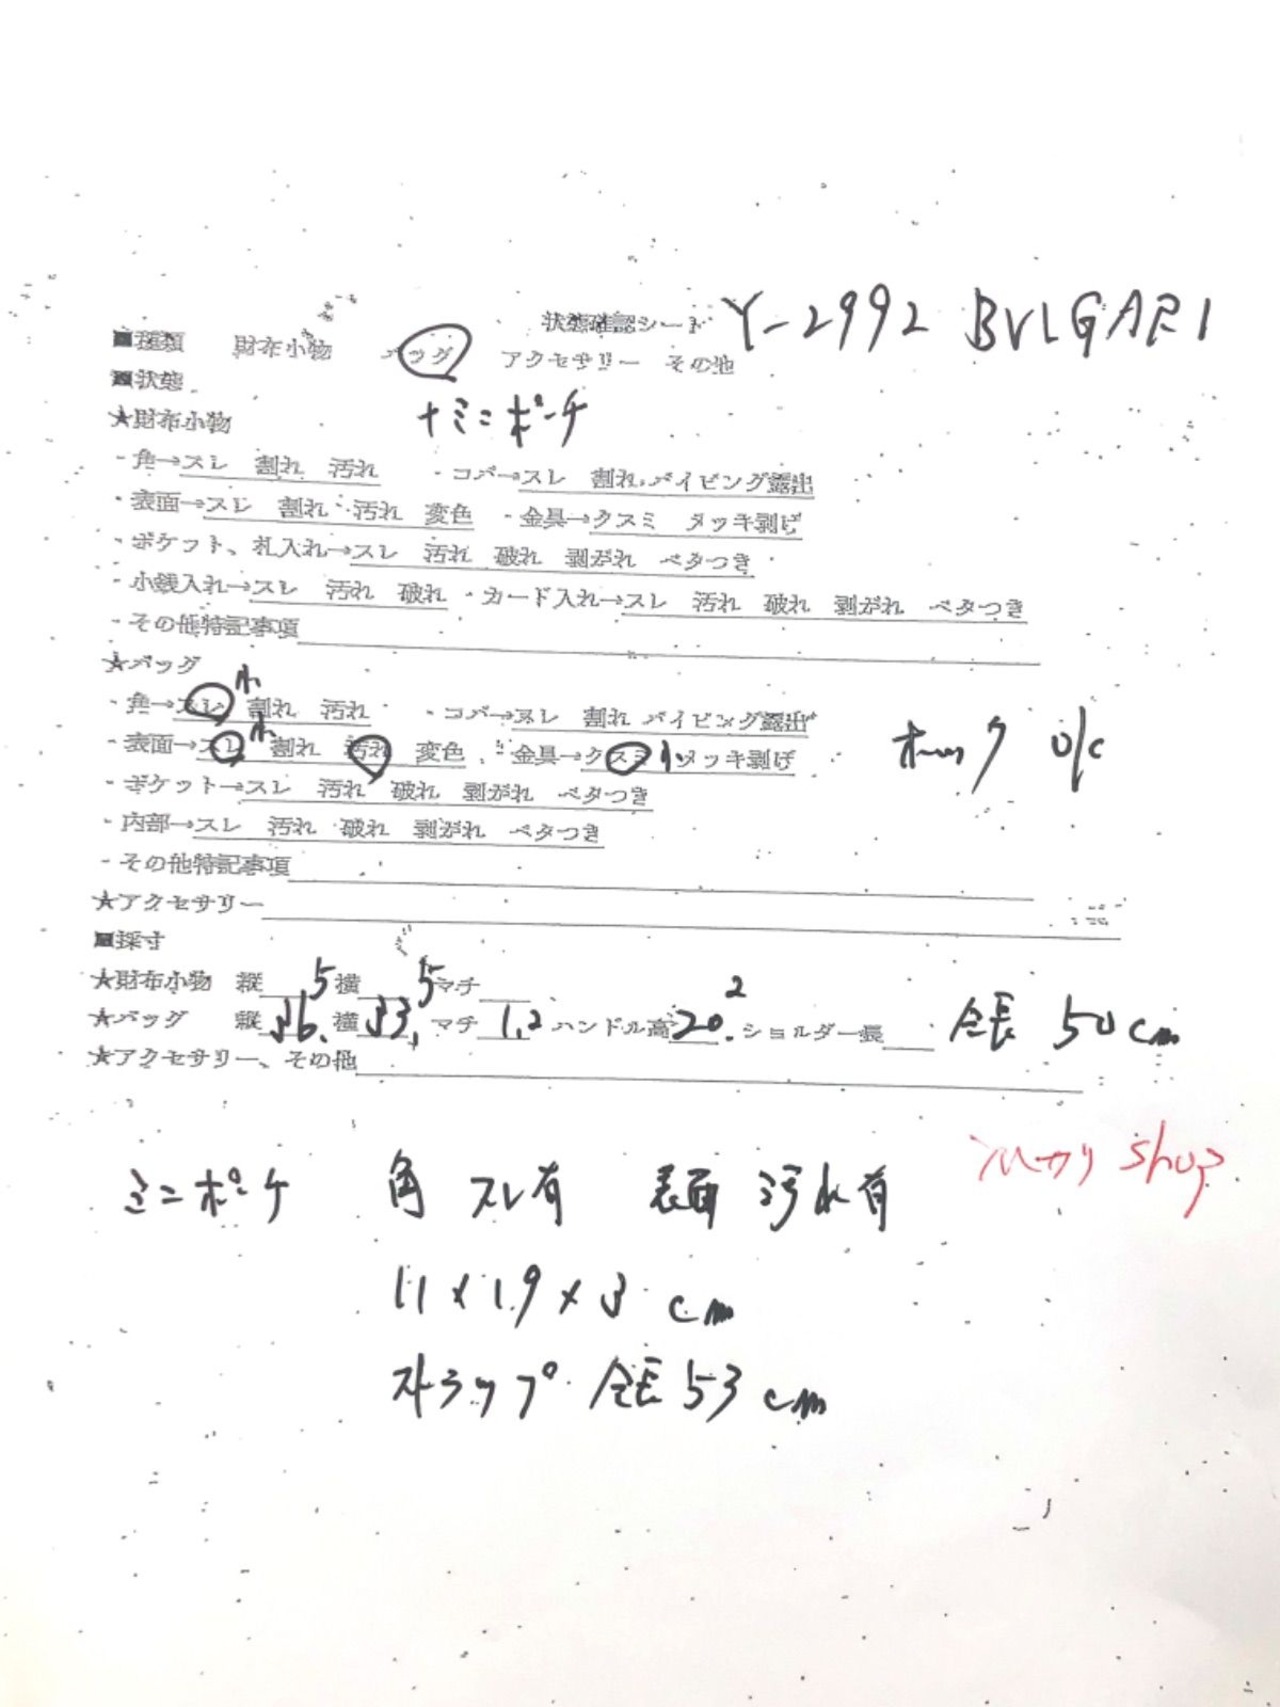 状態確認シート Y-2992 BVLGARI
■種類 財布小物 バッグ アクセサリー その他
■状態
★財布小物 +ミニポーチ
・角→スレ 割れ 汚れ ・コバ→スレ 割れ パイピング露出
・表面→スレ 割れ 汚れ 変色 ・金具→クスミ メッキ剥げ
・ポケット、札入れ→スレ 汚れ 破れ 剥がれ ベタつき
・小銭入れ→スレ 汚れ 破れ ・カード入れ→スレ 汚れ 破れ 剥がれ ベタつき
・その他特記事項
★バッグ
・角→スレ 小 割れ 汚れ ・コバ→スレ 割れ パイピング露出
・表面→スレ 小 割れ 汚れ 変色 ・金具→クスミ 小 メッキ剥げ ホック o/c
・ポケット→スレ 汚れ 破れ 剥がれ ベタつき
・内部→スレ 汚れ 破れ 剥がれ ベタつき
・その他特記事項
★アクセサリー
■採寸
★財布小物 縦 横 マチ
★バッグ 縦 36.5 横 33.5 マチ 1.2 ハンドル高 20.2 ショルダー長 全長 50cm
★アクセサリー、その他
ミニポーチ 角 スレ有 表面 汚れ有 メルカリ shop
11×19×3 cm
ストラップ 全長 53cm